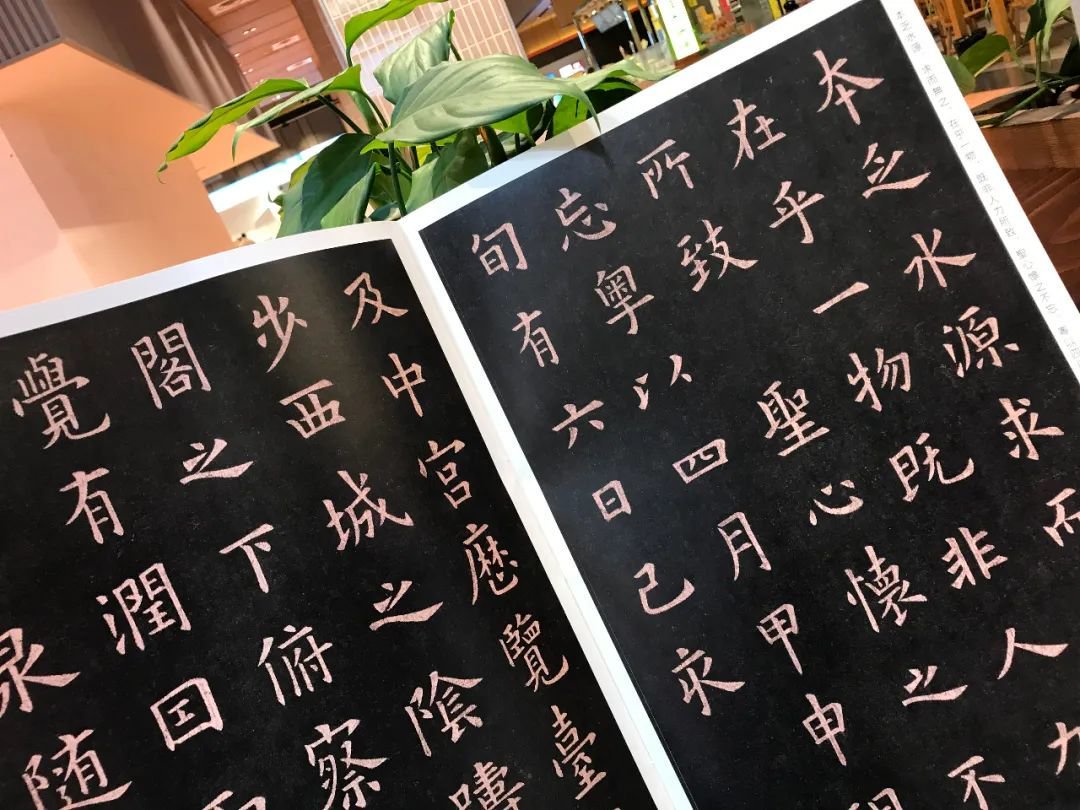 本乏水源　求而無之、在乎一物、既非人力所致、聖心懷之不忘　粵以四
本乏水源求而
在乎一物既非人力
所致聖心懷之不
忘粵以四月甲申
旬有六日己亥
及中宮歷覽臺
步西城之陰躊
閣之下俯察
覺有潤因而
泉隨